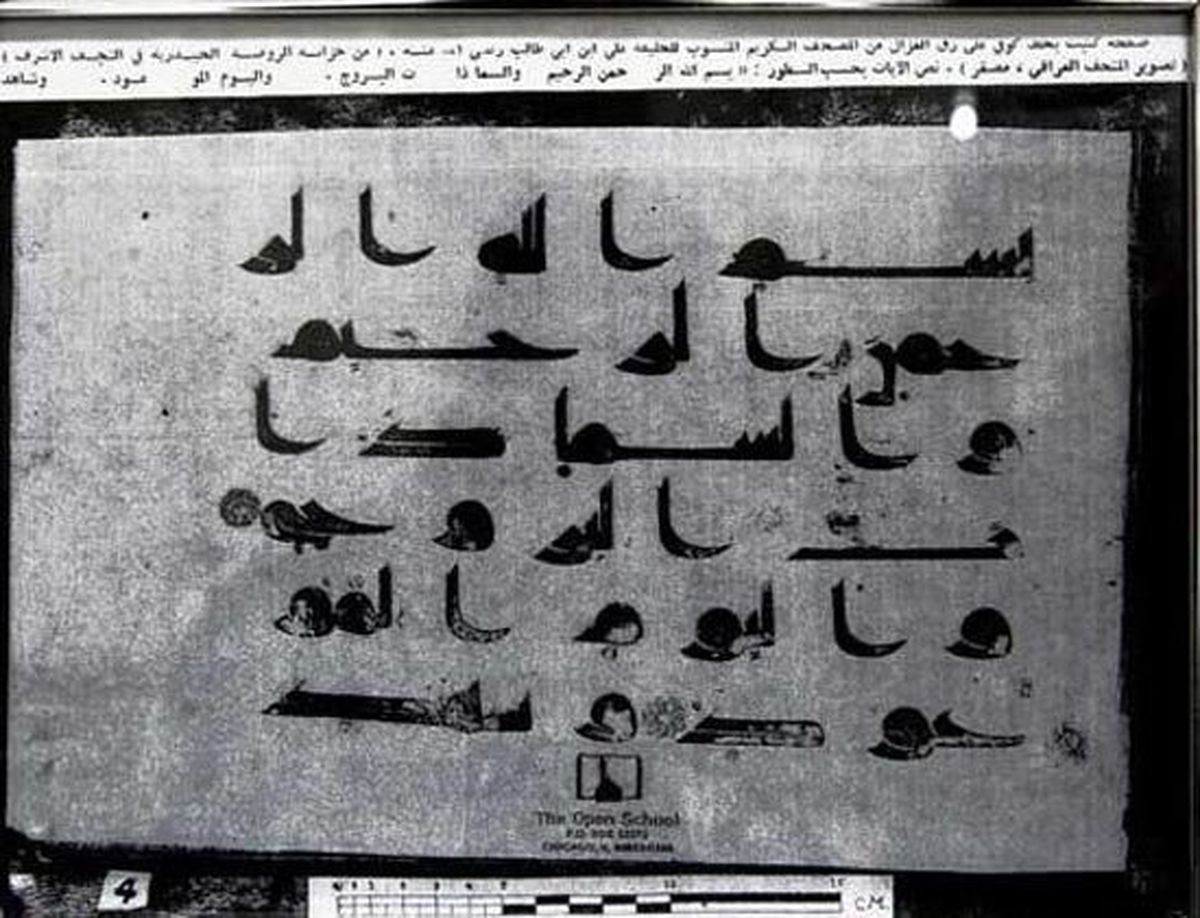 صفحة كتبت بخط كوفي على رق الغزال من المصحف الكريم المنسوب للخليفة علي ابن ابي طالب رضي الله عنه ، ( من خزانة الروضة الحيدرية في النجف الاشرف )
( تصوير المتحف العراقي ، مصغر ) . نص الآيات بحسب السطور : (( بسم الله الر حمن الرحيم والسما ذا ت البروج . واليوم المو عود . وشاهد
بسم الله الر
حمن الرحيم
والسما ذا
ت البروج
واليوم المو
عود وشهد
The Open School
P.O. BOX
CHICAGO, IL
4
CM